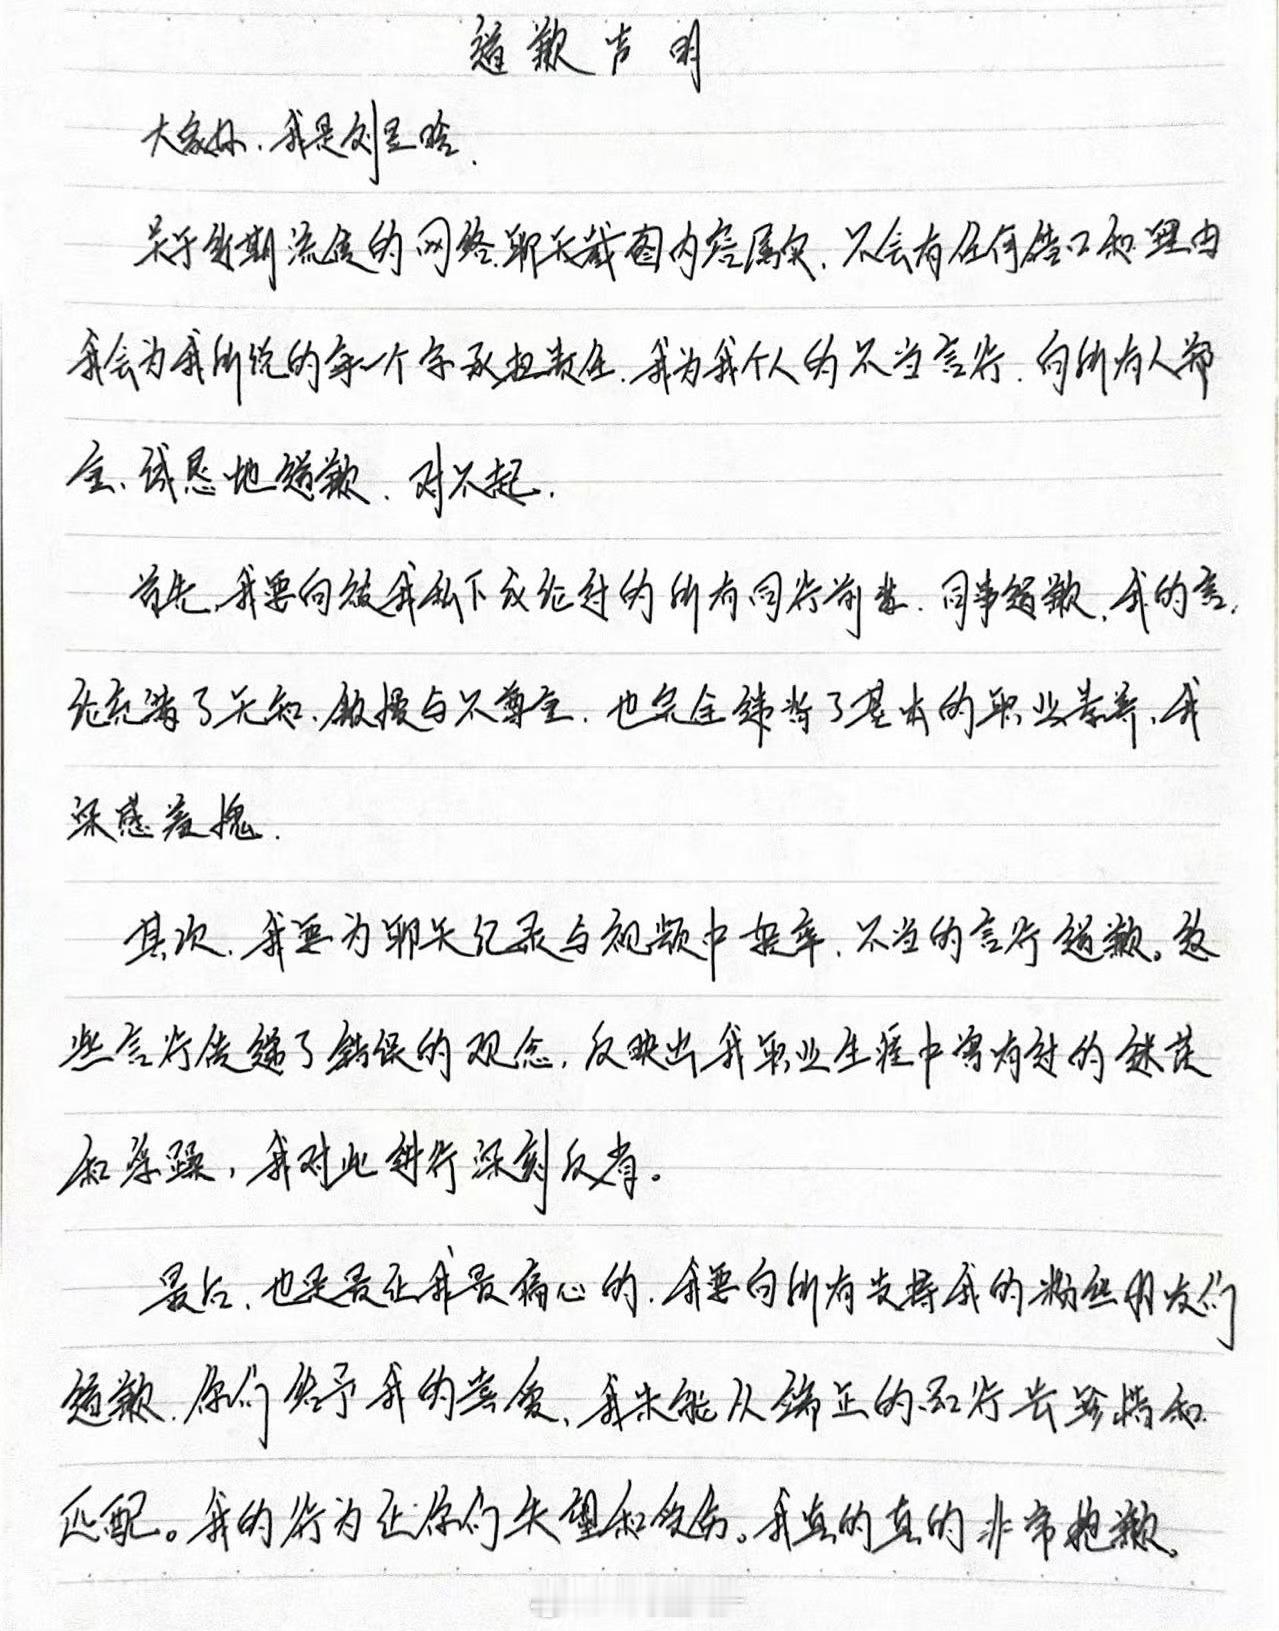 道歉声明
大家好,我是刘呈晗.
关于近期流传的网络聊天截图内容属实,不会有任何借口和理由
我会为我所说的每一个字承担责任,我为我个人的不当言行,向所有人郑
重、诚恳地道歉、对不起.
首先,我要向被我私下议论过的所有同行前辈、同事道歉,我的言
论充满了无知、傲慢与不尊重,也完全违背了基本的职业素养,我
深感羞愧.
其次,我要为聊天记录与视频中轻率、不当的言行道歉。这
些言行传递了错误的观念,反映出我职业生涯中曾有过的迷茫
和浮躁,我对此进行深刻反省。
最后,也是最让我最痛心的,我要向所有支持我的粉丝朋友们
道歉,你们给予我的喜爱,我未能从端正的品行去珍惜和
匹配。我的行为让你们失望和受伤。我真的真的非常抱歉。